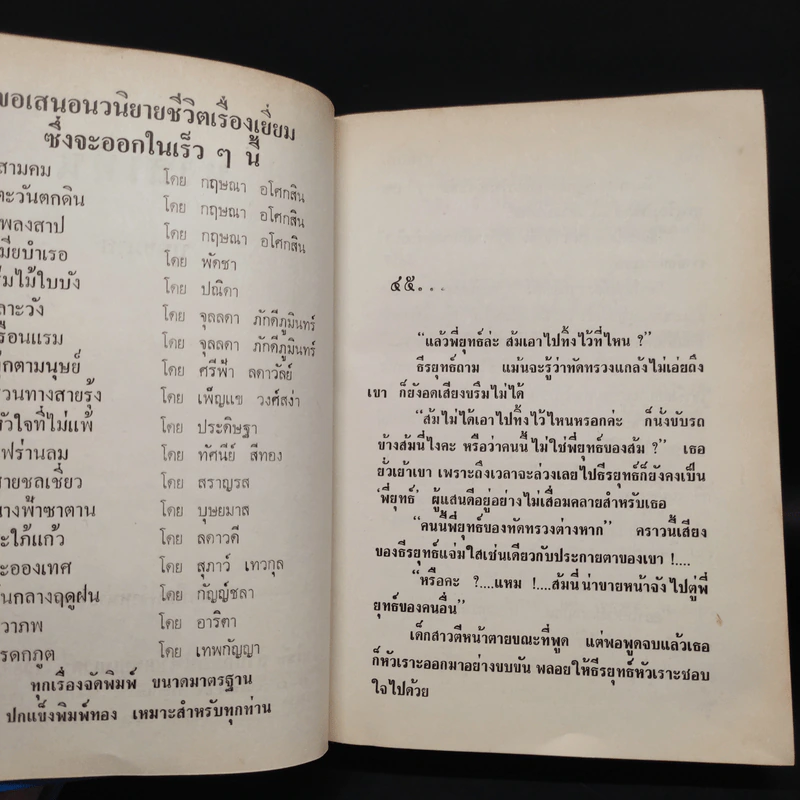 ขอเสนอนวนิยายชีวิตเรื่องเยี่ยม
ซึ่งจะออกในเร็ว ๆ นี้
สามคม โดย กฤษณา อโศกสิน
ตะวันตกดิน โดย กฤษณา อโศกสิน
เพลงสาป โดย กฤษณา อโศกสิน
เมียบำเรอ โดย พัดชา
ร่มไม้ใบบัง โดย ปณิตา
เลาะวัง โดย จุลลดา ภักดีภูมินทร์
เรือนแรม โดย จุลลดา ภักดีภูมินทร์
ตุ๊กตามนุษย์ โดย ศรีฟ้า ลดาวัลย์
สวนทางสายรุ้ง โดย เพ็ญแข วงศ์สง่า
หัวใจที่ไม่แพ้ โดย ประดิษฐา
โดย ทัศนีย์ สีทอง
สายชลเชี่ยว โดย สราญรส
นางฟ้าซาตาน โดย บุษยมาส
สะใภ้แก้ว โดย ลดาวดี
ละอองเทศ โดย สุภาว์ เทวกุล
ฝนกลางฤดูฝน โดย กัญญ์ชลา
โดย อาริตา
มรดกภูต โดย เทพกัญญา
ทุกเรื่องจัดพิมพ์ ขนาดมาตรฐาน
ปกแข็งพิมพ์ทอง เหมาะสำหรับทุกท่าน
๔๕...
“แล้วพี่ยุทธ์ล่ะ ส้มเอาไปทิ้งไว้ที่ไหน ?”
ธีรยุทธ์ถาม แม้นจะรู้ว่าทัดทรวงแกล้งไม่เอ่ยถึง
เขา ก็ยังอดเสียงขรึมไม่ได้
“ส้มไม่ได้เอาไปทิ้งไว้ไหนหรอกค่ะ ก็นั่งขับรถ
ข้างส้มนี่ไงคะ หรือว่าคนนี้ไม่ใช่พี่ยุทธ์ของส้ม ?” เธอ
ยั่วเย้าเขา เพราะถึงเวลาจะล่วงเลยไปธีรยุทธ์ก็ยังคงเป็น
‘พี่ยุทธ์’ ผู้แสนดีอยู่อย่างไม่เสื่อมคลายสำหรับเธอ
“คนนี้พี่ยุทธ์ของทัดทรวงต่างหาก” คราวนี้เสียง
ของธีรยุทธ์แจ่มใสเช่นเดียวกับประกายตาของเขา !....
“หรือคะ ?....แหม !....ส้มนี่น่าขายหน้าจัง ไปตู่พี่
ยุทธ์ของคนอื่น”
เด็กสาวตีหน้าตายขณะที่พูด แต่พอพูดจบแล้วเธอ
ก็หัวเราะออกมาอย่างขบขัน พลอยให้ธีรยุทธ์หัวเราะชอบ
ใจไปด้วย